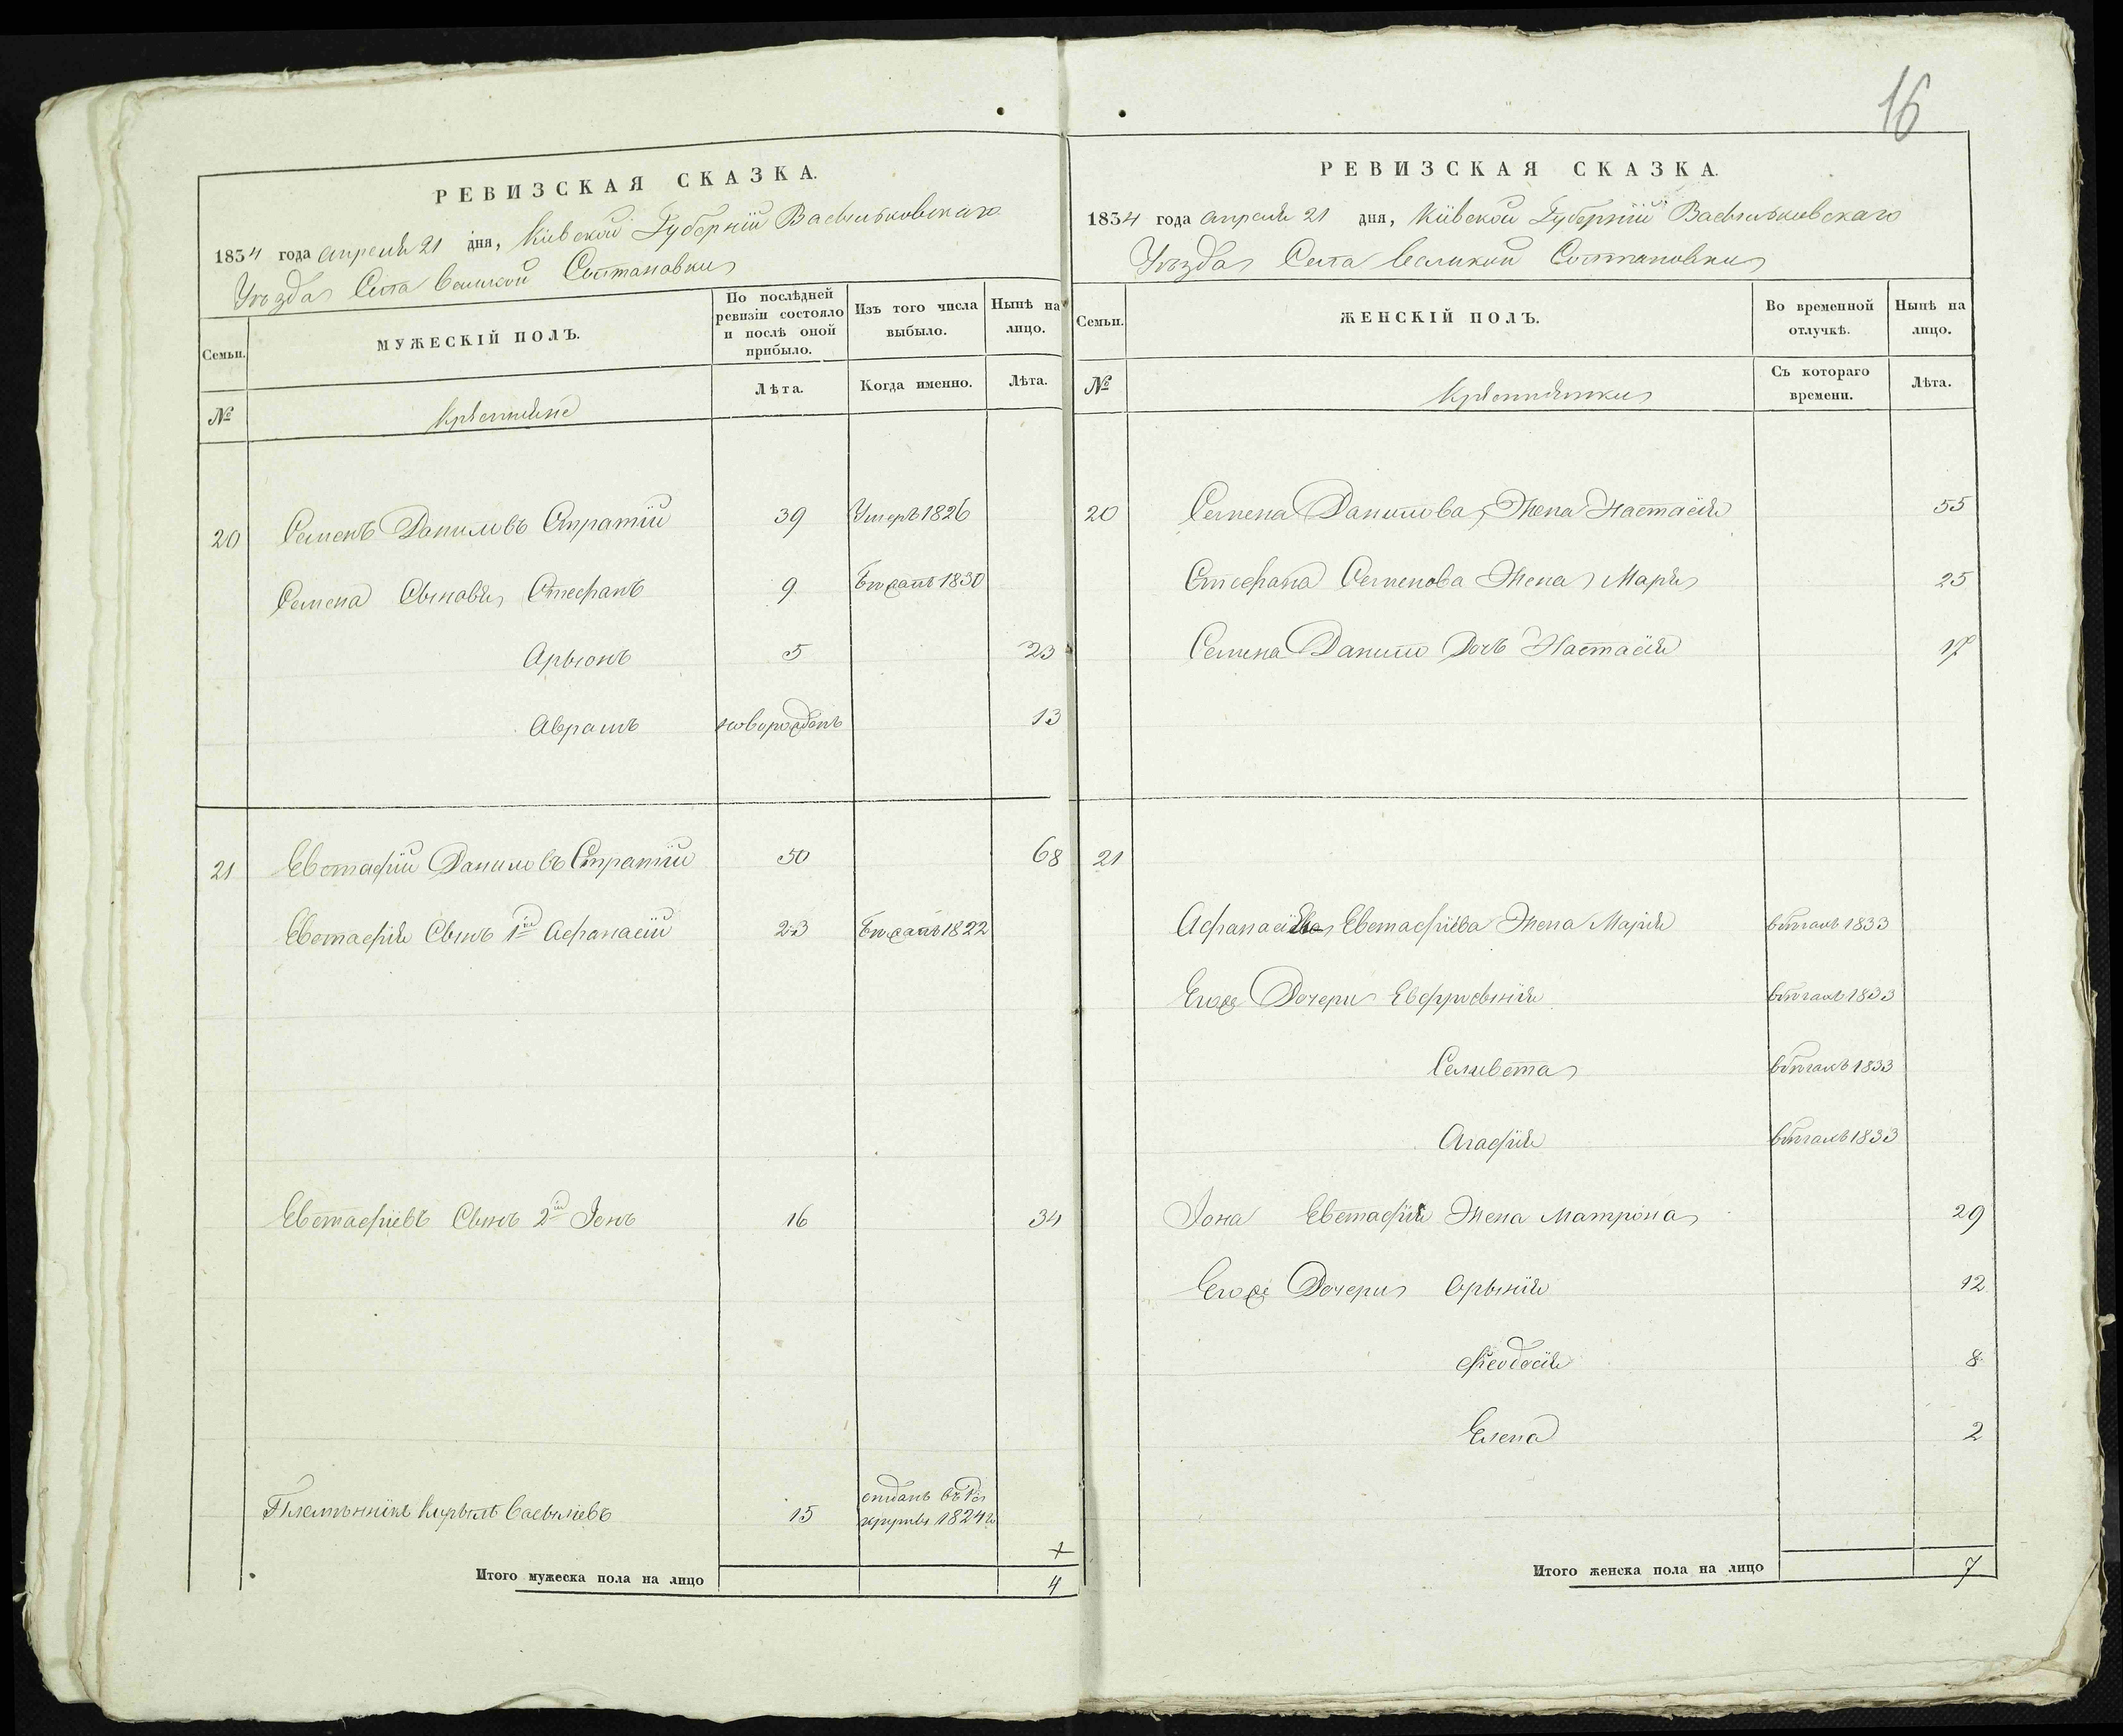 16
РЕВИЗСКАЯ СКАЗКА.
1834 года апреля 21 дня, Кіевской Губерніи Васильковскаго
Уѣзда Села Великой Солтановки
Семьи.
МУЖЕСКІЙ ПОЛЪ.
По послѣдней ревизіи состояло и послѣ оной прибыло.
Изъ того числа выбыло.
Нынѣ на лицо.
№
Крѣстяне
Лѣта.
Когда именно.
Лѣта.
20 Семенъ Даниловъ Стратій 39 Умеръ 1826
Семена Сыновья Стефанъ 9 Бѣжалъ 1830
Арьіонъ 5 23
Аврамъ новорожденъ 13
21 Евстафій Даниловъ Стратій 50 68
Евстафія Сынъ 1й Афанасій 23 Бѣжалъ 1822
Евстафіевъ Сынъ 2й Іонъ 16 34
Племѣнникъ Кирылъ Васылiевъ 15 отданъ въ Рекруты 1824го
Итого мужеска пола на лицо 4
РЕВИЗСКАЯ СКАЗКА.
1834 года апреля 21 дня, Кіивской Губерніи Васильковскаго
Уѣзда Села Великой Солтановки
Семьи.
ЖЕНСКІЙ ПОЛЪ.
Во временной отлучкѣ.
Нынѣ на лицо.
№
Крѣстянки
Съ котораго времени.
Лѣта.
20 Семена Данилова Жена Настасія 55
Стефана Семенова Жена Марія 25
Семена Данило Дочь Настасія 17
21
Афанасія Евстафіева Жена Марія вбѣгахъ 1833
Егоже Дочери Евфросынія вбѣгахъ 1833
Селивета вбѣгахъ 1833
Агафія вбѣгахъ 1833
Іона Евстафія Жена Матрона 29
Егоже Дочери Орынія 12
Феодосія 8
Елена 2
Итого женска пола на лицо 7